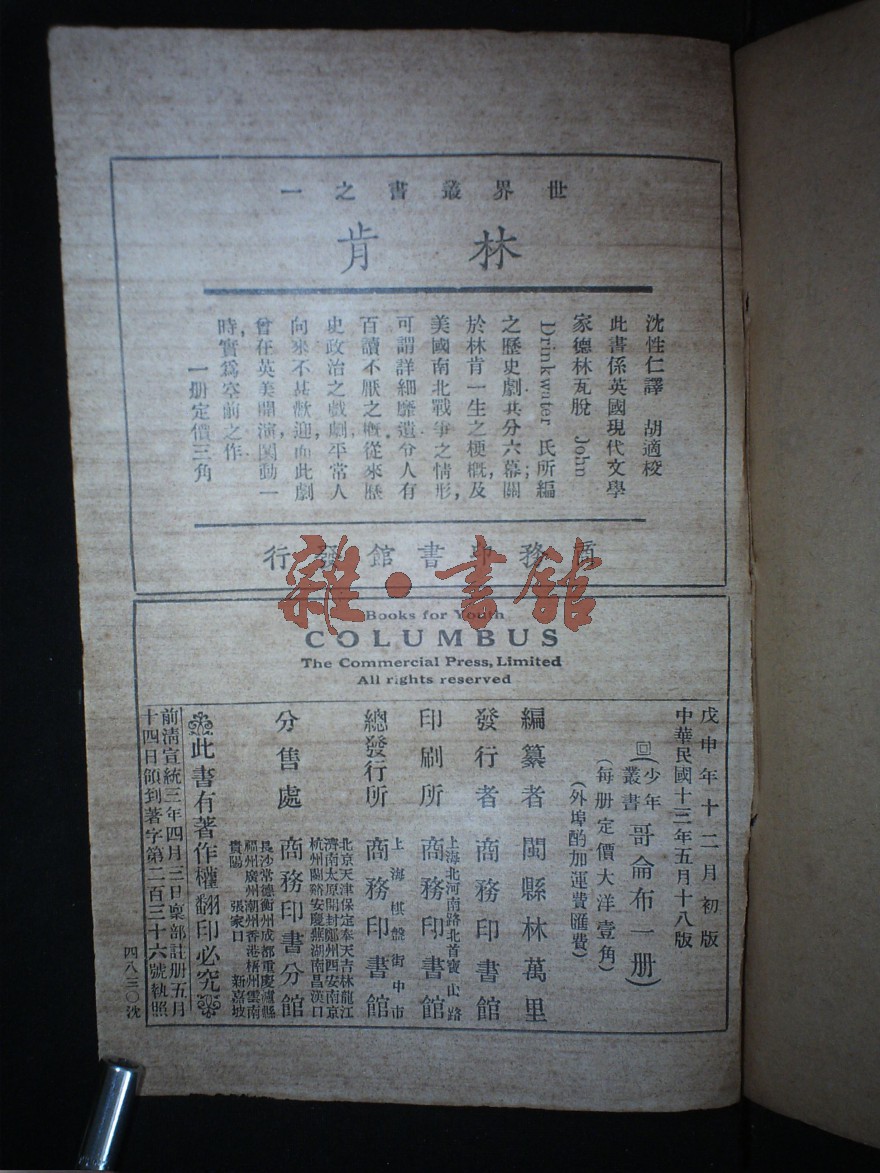 世界叢書之一
林肯
沈性仁譯 胡適校
此書係英國現代文學
家德林瓦脫 John
Drinkwater 氏所編
之歷史劇共分六幕;關
於林肯一生之梗概,及
美國南北戰爭之情形,
可謂詳細靡遺令人有
百讀不厭之概.從來歷
史政治之戲劇,平常人
向來不甚歡迎,而此劇
曾在英美開演,鬨動一
時,實為空前之作.
一册定價三角
商務印書館發行
雜·書館
Books for Youth
COLUMBUS
The Commercial Press, Limited
All rights reserved
戊申年十二月初版
中華民國十三年五月十八版
(少年叢書 哥侖布一册)
(每册定價大洋壹角)
(外埠酌加運費匯費)
編纂者 閩縣林萬里
發行者 商務印書館
上海北河南路北首寶山路
印刷所 商務印書館
上海棋盤街中市
總發行所 商務印書館
分售處 商務印書分館
北京天津保定奉天吉林龍江
濟南太原開封鄭州西安南京
杭州蘭谿安慶蕪湖南昌漢口
長沙常德衡州成都重慶瀘縣
福州廣州潮州香港梧州雲南
貴陽 張家口 新嘉坡
此書有著作權翻印必究
前清宣統三年四月三日稟部註册五月
十四日領到著字第二百三十六號執照
四八三〇沈